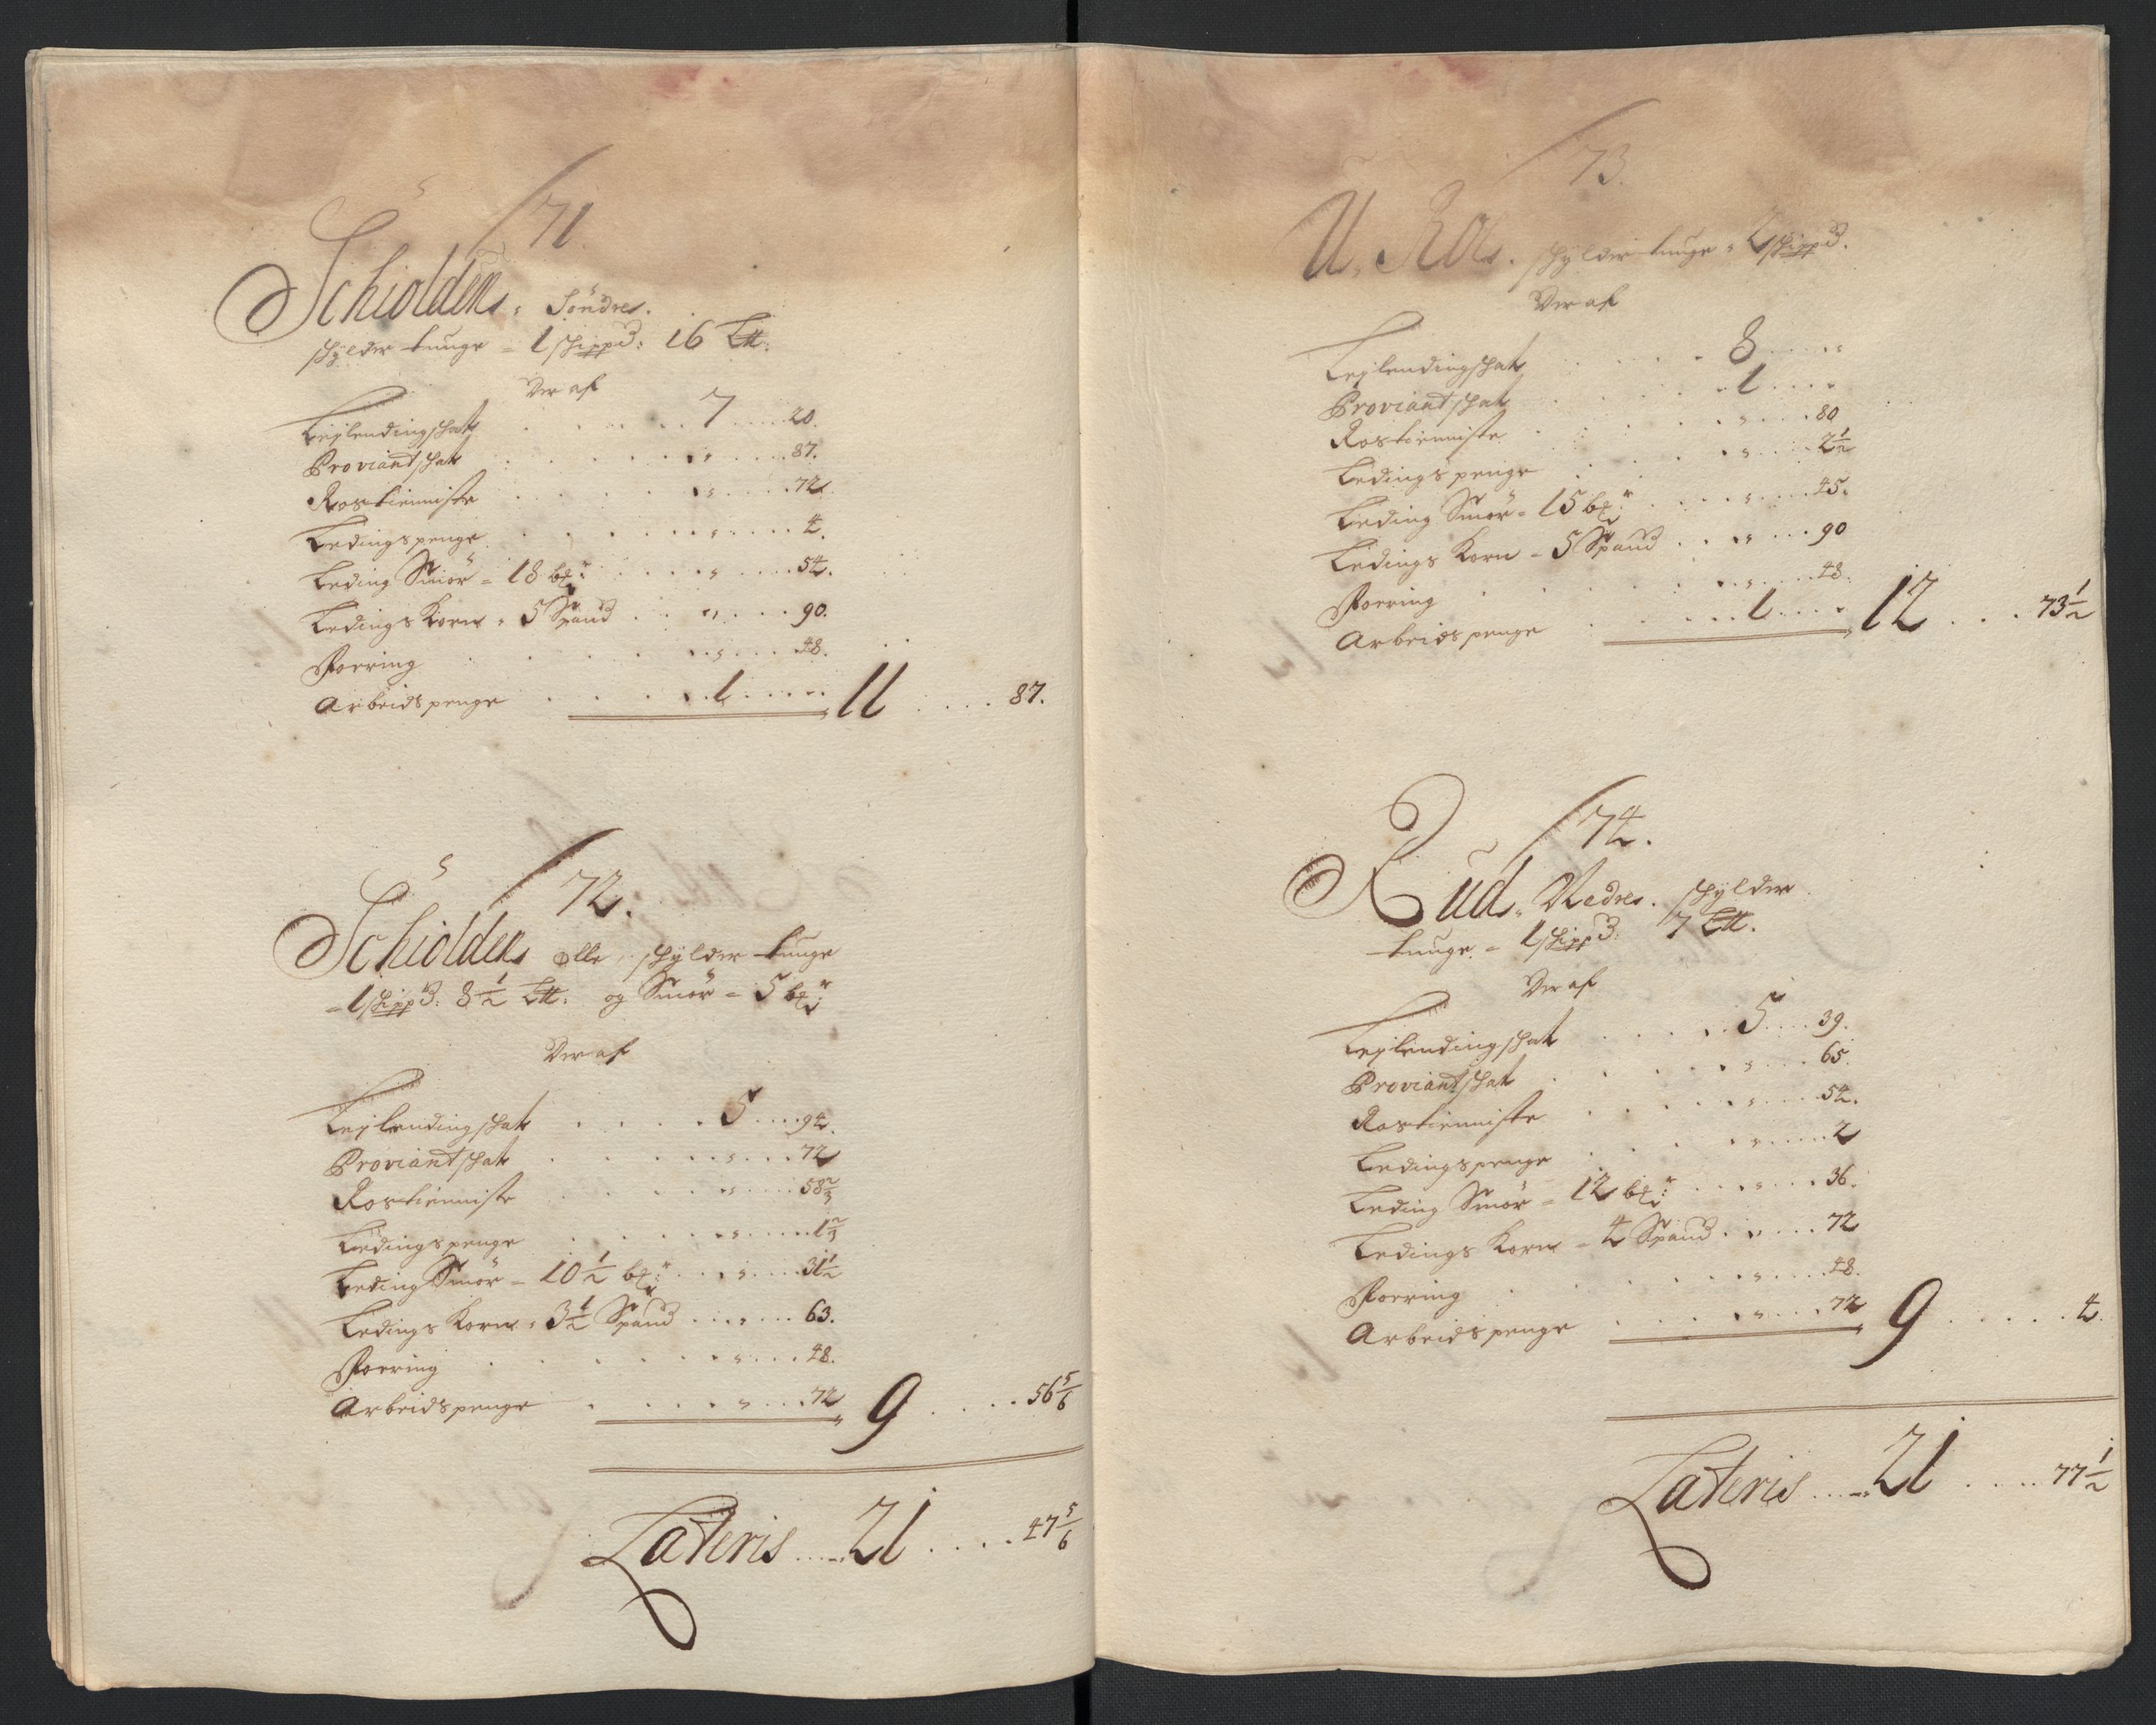 71.
Schiolden, Söndre.
schylder tunge = 1 schippd: 16 L℔:
Der af
Leylendingschat . . . . . 7 . . . . 20.
Proviantschat . . . . . „ . . . . 87.
Rostienniste . . . . . „ . . . . 72.
Ledingspenge . . . . . „ . . . . 4.
Leding Smör = 18 bpd:r . . . . „ . . . . 54.
Ledings Korn = 5 Spand . . . „ . . . . 90.
Foering . . . . . „ . . . . 48.
Arbeidspenge . . . . . 1 . . . . „ 11 . . . . 87.
72.
Schiolden Olle, schylder tunge
= 1 schippd: 8 1/2 L℔: og Smör = 5 bpd:r
Der af
Leylendingschat . . . . . 5 . . . . 94.
Proviantschat . . . . . „ . . . . 72
Rostienniste . . . . . „ . . . . 58 2/3
Ledingspenge . . . . . „ . . . . 1 2/3
Leding Smör = 10 1/2 bpd:r . . . „ . . . . 31 1/2
Ledings Korn = 3 1/2 Spand . . . „ . . . . 63.
Foering . . . . . „ . . . . 48.
Arbeidspenge . . . . . „ . . . . 72 „ 9 . . . . 56 5/6
Lateris . . . . 21 . . . . 47 5/6
73.
schylder tunge = 2 schippd.
Der af
Leylendingschat . . . . . 8 . . . . „
Proviantschat . . . . . 1 . . . . „
Rostienniste . . . . . „ . . . . 80
Ledingspenge . . . . . „ . . . . 2 1/2
Leding Smör = 15 bpd:r . . . . „ . . . . 45.
Ledings Korn = 5 Spand . . . „ . . . . 90
Foering . . . . . „ . . . . 48.
Arbeidspenge . . . . . 1 . . . . „ 12 . . . . 73 1/2
74.
Rud, Nedre. schylder
tunge = 1 schippd: 7 L℔.
Der af
Leylendingschat . . . . . 5 . . . . 39.
Proviantschat . . . . . „ . . . . 65.
Rostienniste . . . . . „ . . . . 54.
Ledingspenge . . . . . „ . . . . 2
Leding Smör = 12 bpd:r . . . . „ . . . . 36.
Ledings Korn = 4 Spand . . . „ . . . . 72
Foering . . . . . „ . . . . 48.
Arbeidspenge . . . . . „ . . . . 72 „ 9 . . . . 4.
Lateris . . . . 21 . . . . 77 1/2